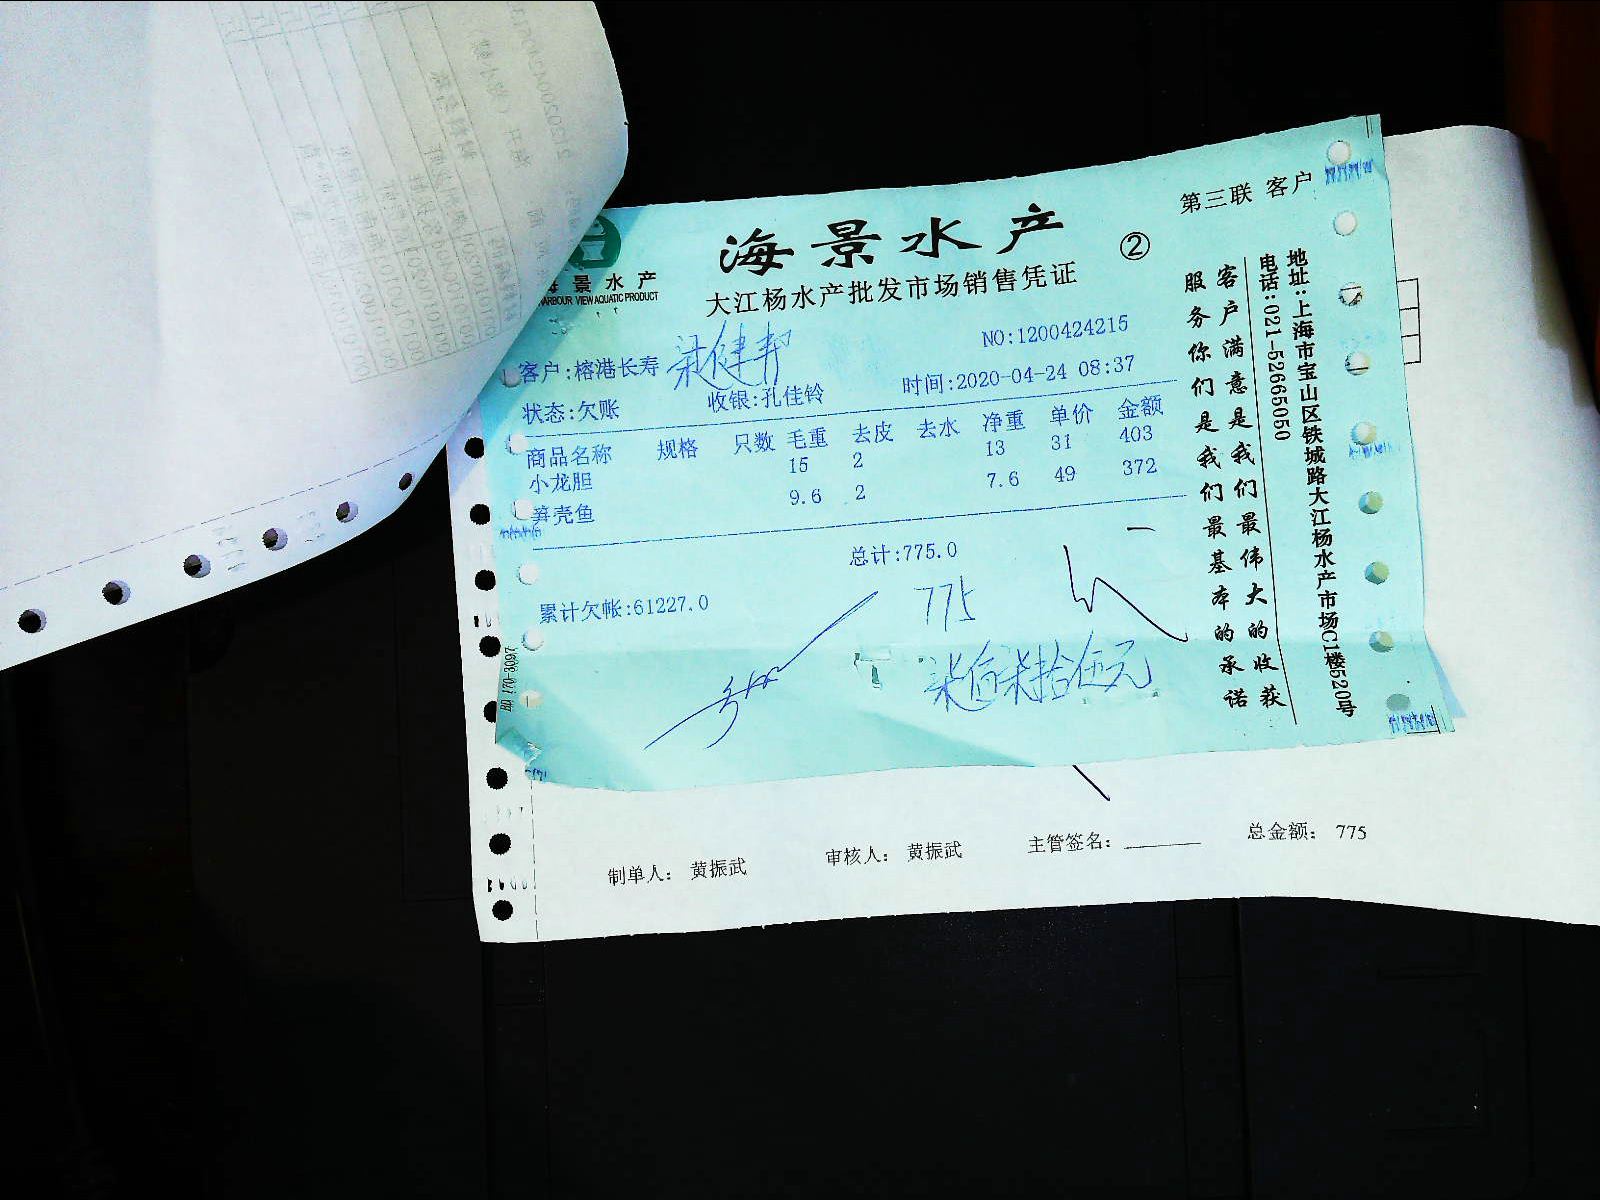 第三联 客户
海景水产
②
大江杨水产批发市场销售凭证
景水产
HARBOUR VIEW AQUATIC PRODUCT
NO:1200424215
客户:榕港长寿 梁健邦
时间:2020-04-24 08:37
状态:欠账 收银:孔佳铃
商品名称 规格 只数 毛重 去皮 去水 净重 单价 金额
小龙胆 15 2 13 31 403
笋壳鱼 9.6 2 7.6 49 372
总计:775.0
累计欠帐:61227.0
775
柒佰柒拾伍元
服务你们是我们最基本的承诺
客户满意是我们最伟大的收获
电话:021-52665050
地址:上海市宝山区铁城路大江杨水产市场C1楼520号
制单人: 黄振武 审核人: 黄振武 主管签名: 总金额: 775